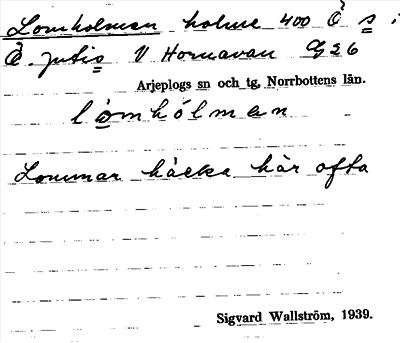 Lomholmen holme 400 Ö s i
Ö. Jutis V Hornavan G 26
Arjeplogs sn och tg, Norrbottens län.
lòmhólman
Lommar häcka här ofta
Sigvard Wallström, 1939.